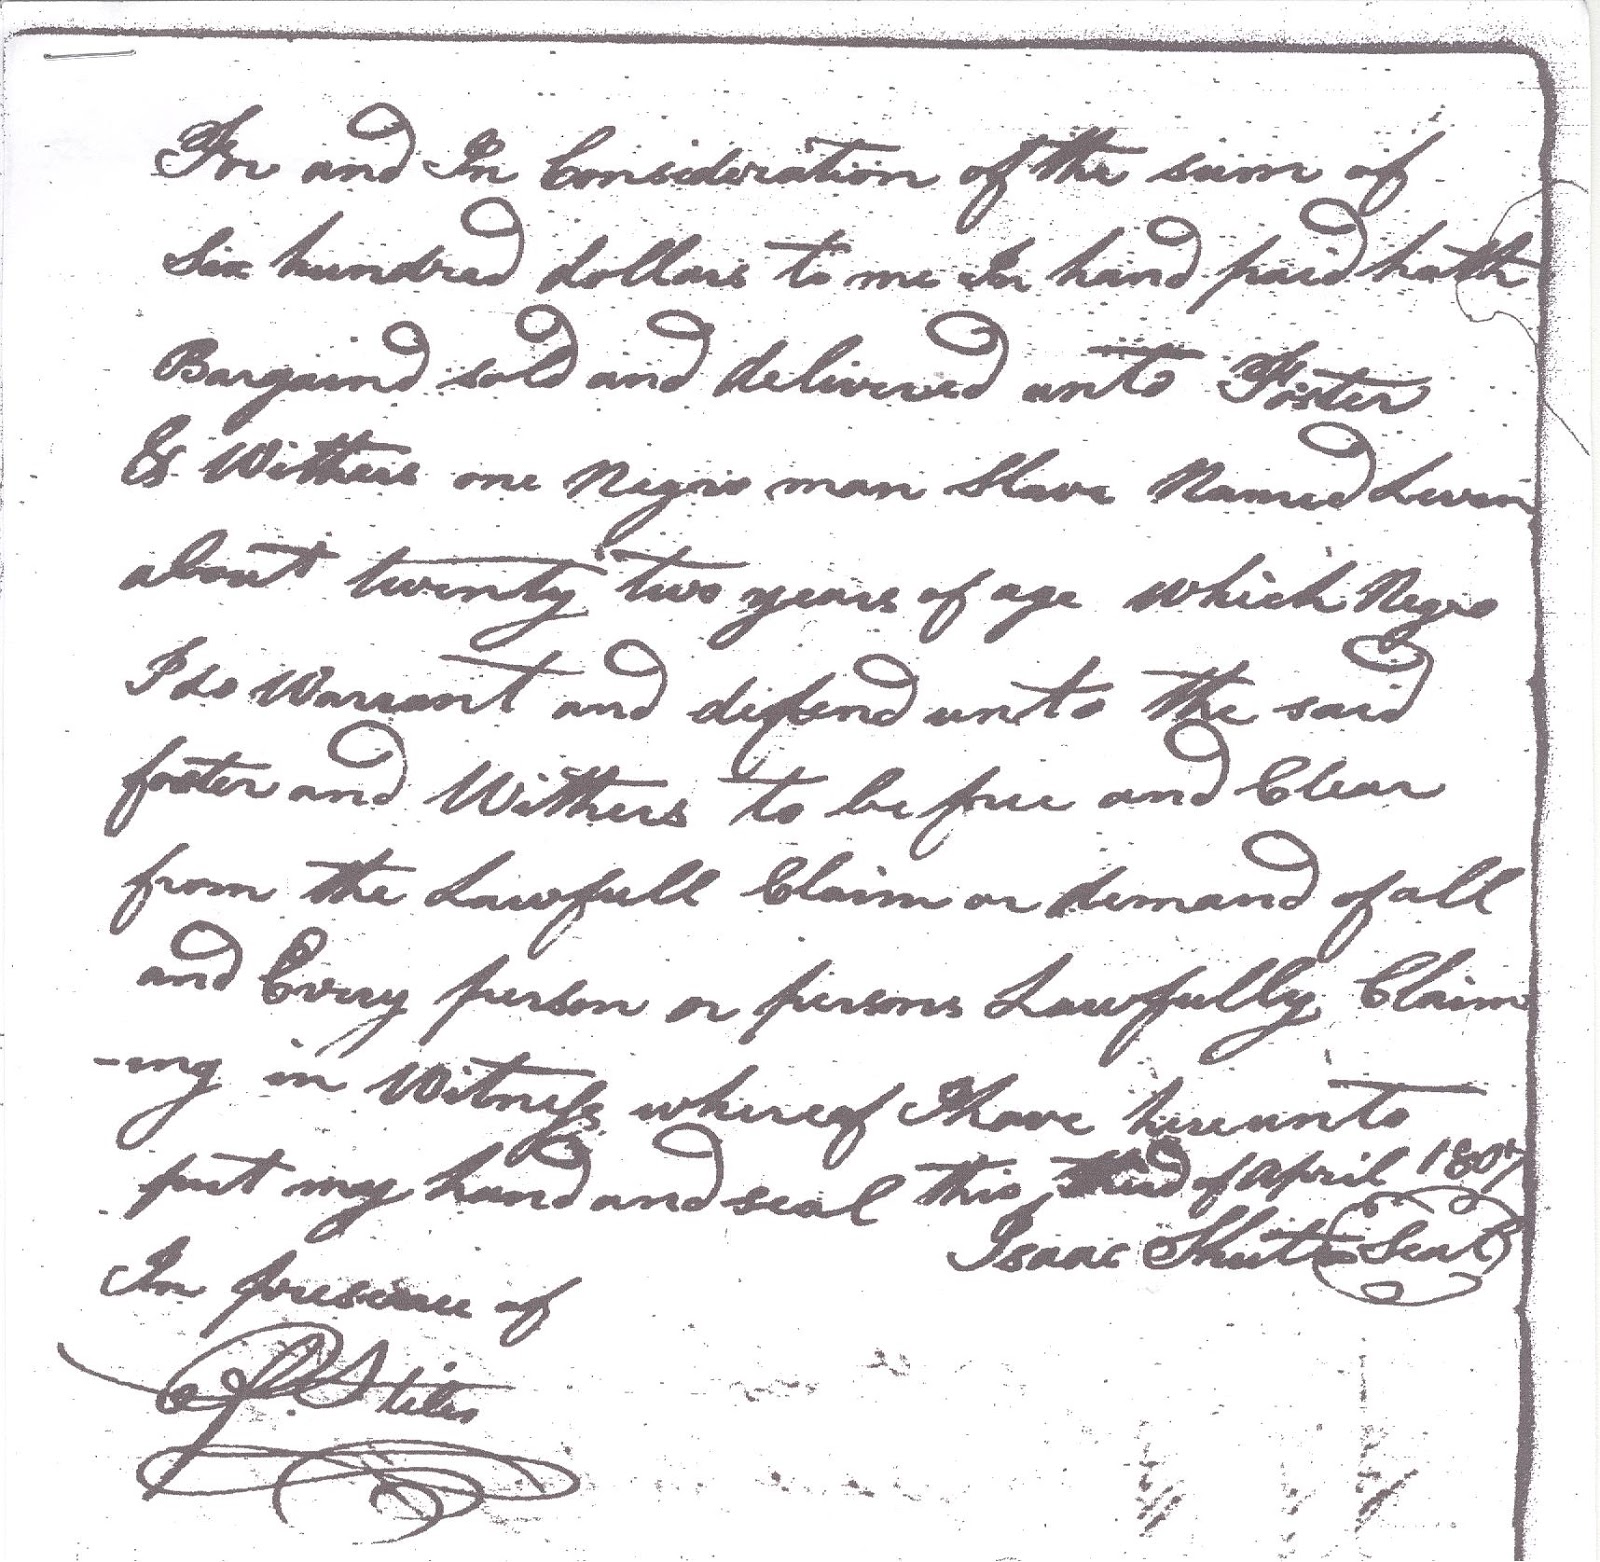 For and In Consideration of the sum of
Six hundred dollars to me In hand paid hath
Bargaind sold and delivered unto Foster
& Withers one Negro man Slave Named Levin
about twenty two years of age which Negro
I do Warrant and defend unto the said
foster and Withers to be free and Clear
from the Lawfull Claim or demand of all
and Every person or persons Lawfully Claim
-ing in Witness whereof I have hereunto
put my hand and seal this third of April 1807
Isaac Shute Seal
In presence of
P. Stiles